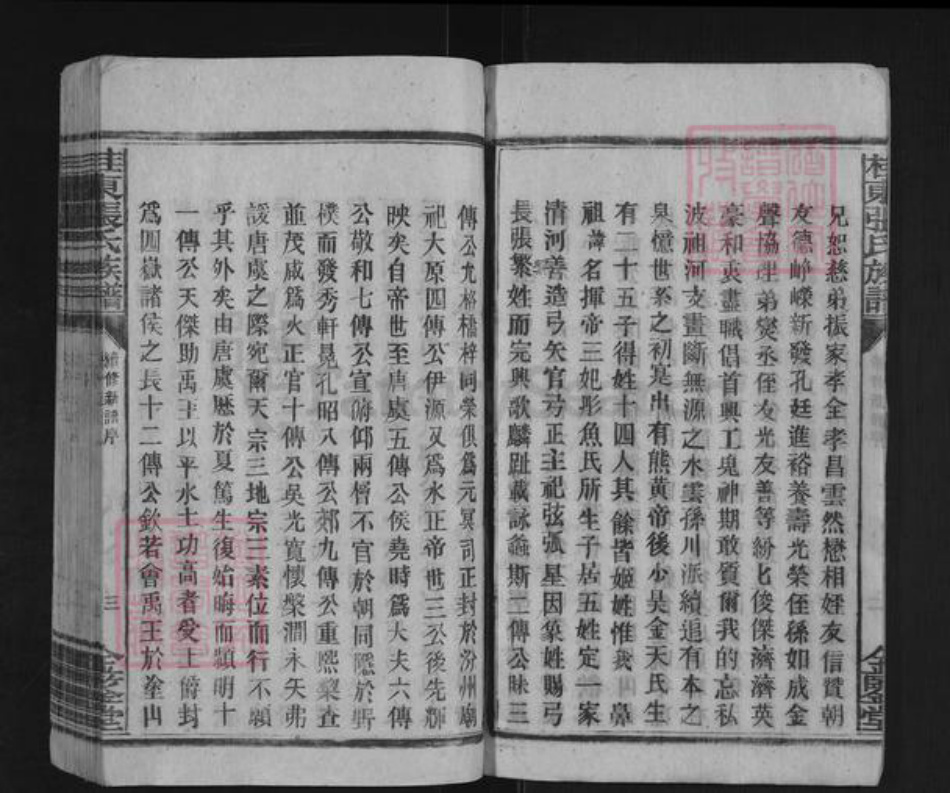 桂東張氏族譜
兄恕慈弟振家孝全孝昌雲然懋相姪友信賛朝
友德崢嶸新發孔廷進裕養壽光榮侄孫如成金
聲協理弟燮丞侄友光友善等紛匕俊傑濟濟英
豪和衷盡職倡首興工鬼神期敢質爾我的忘私
波祖河支盡斷無源之水雲孫川派續追有本之
泉憶世系之初寔出有熊黃帝後少昊金天氏生
有二十五子得姓十四人其餘皆姬姓惟我鼻
祖諱名揮帝三妃彤魚氏所生子居五姓定一家
清河善造弓矢官弓正主祀弦弧星因篆姓賜弓
長張繁姓而完興歌麟趾載詠螽斯二傳公昧三
傳公允格橋梓同榮俱爲元冥司正封於汾州廟
祀大原四傳公伊源又爲水正帝世三公後先輝
映矣自帝世至唐虞五傳公侯堯時爲大夫六傳
公敬和七傳公宣俯仰兩僭不官於朝同隱於野
樸而發秀軒晃孔昭八傳公郊九傳公重熙黎查
並茂咸爲火正官十傳公吳光寬懷槃澗永矢弗
諼唐虞之際宛爾天宗三地宗三素位而行不願
乎其外矣由唐虞歷於夏篤生復始晦而顯明十
一傳公天傑助禹王以平水土功高者受上爵封
爲四嶽諸侯之長十二傳公欽若會禹王於塗山
桂東張氏族譜
續修新譜序
三
金鑒堂